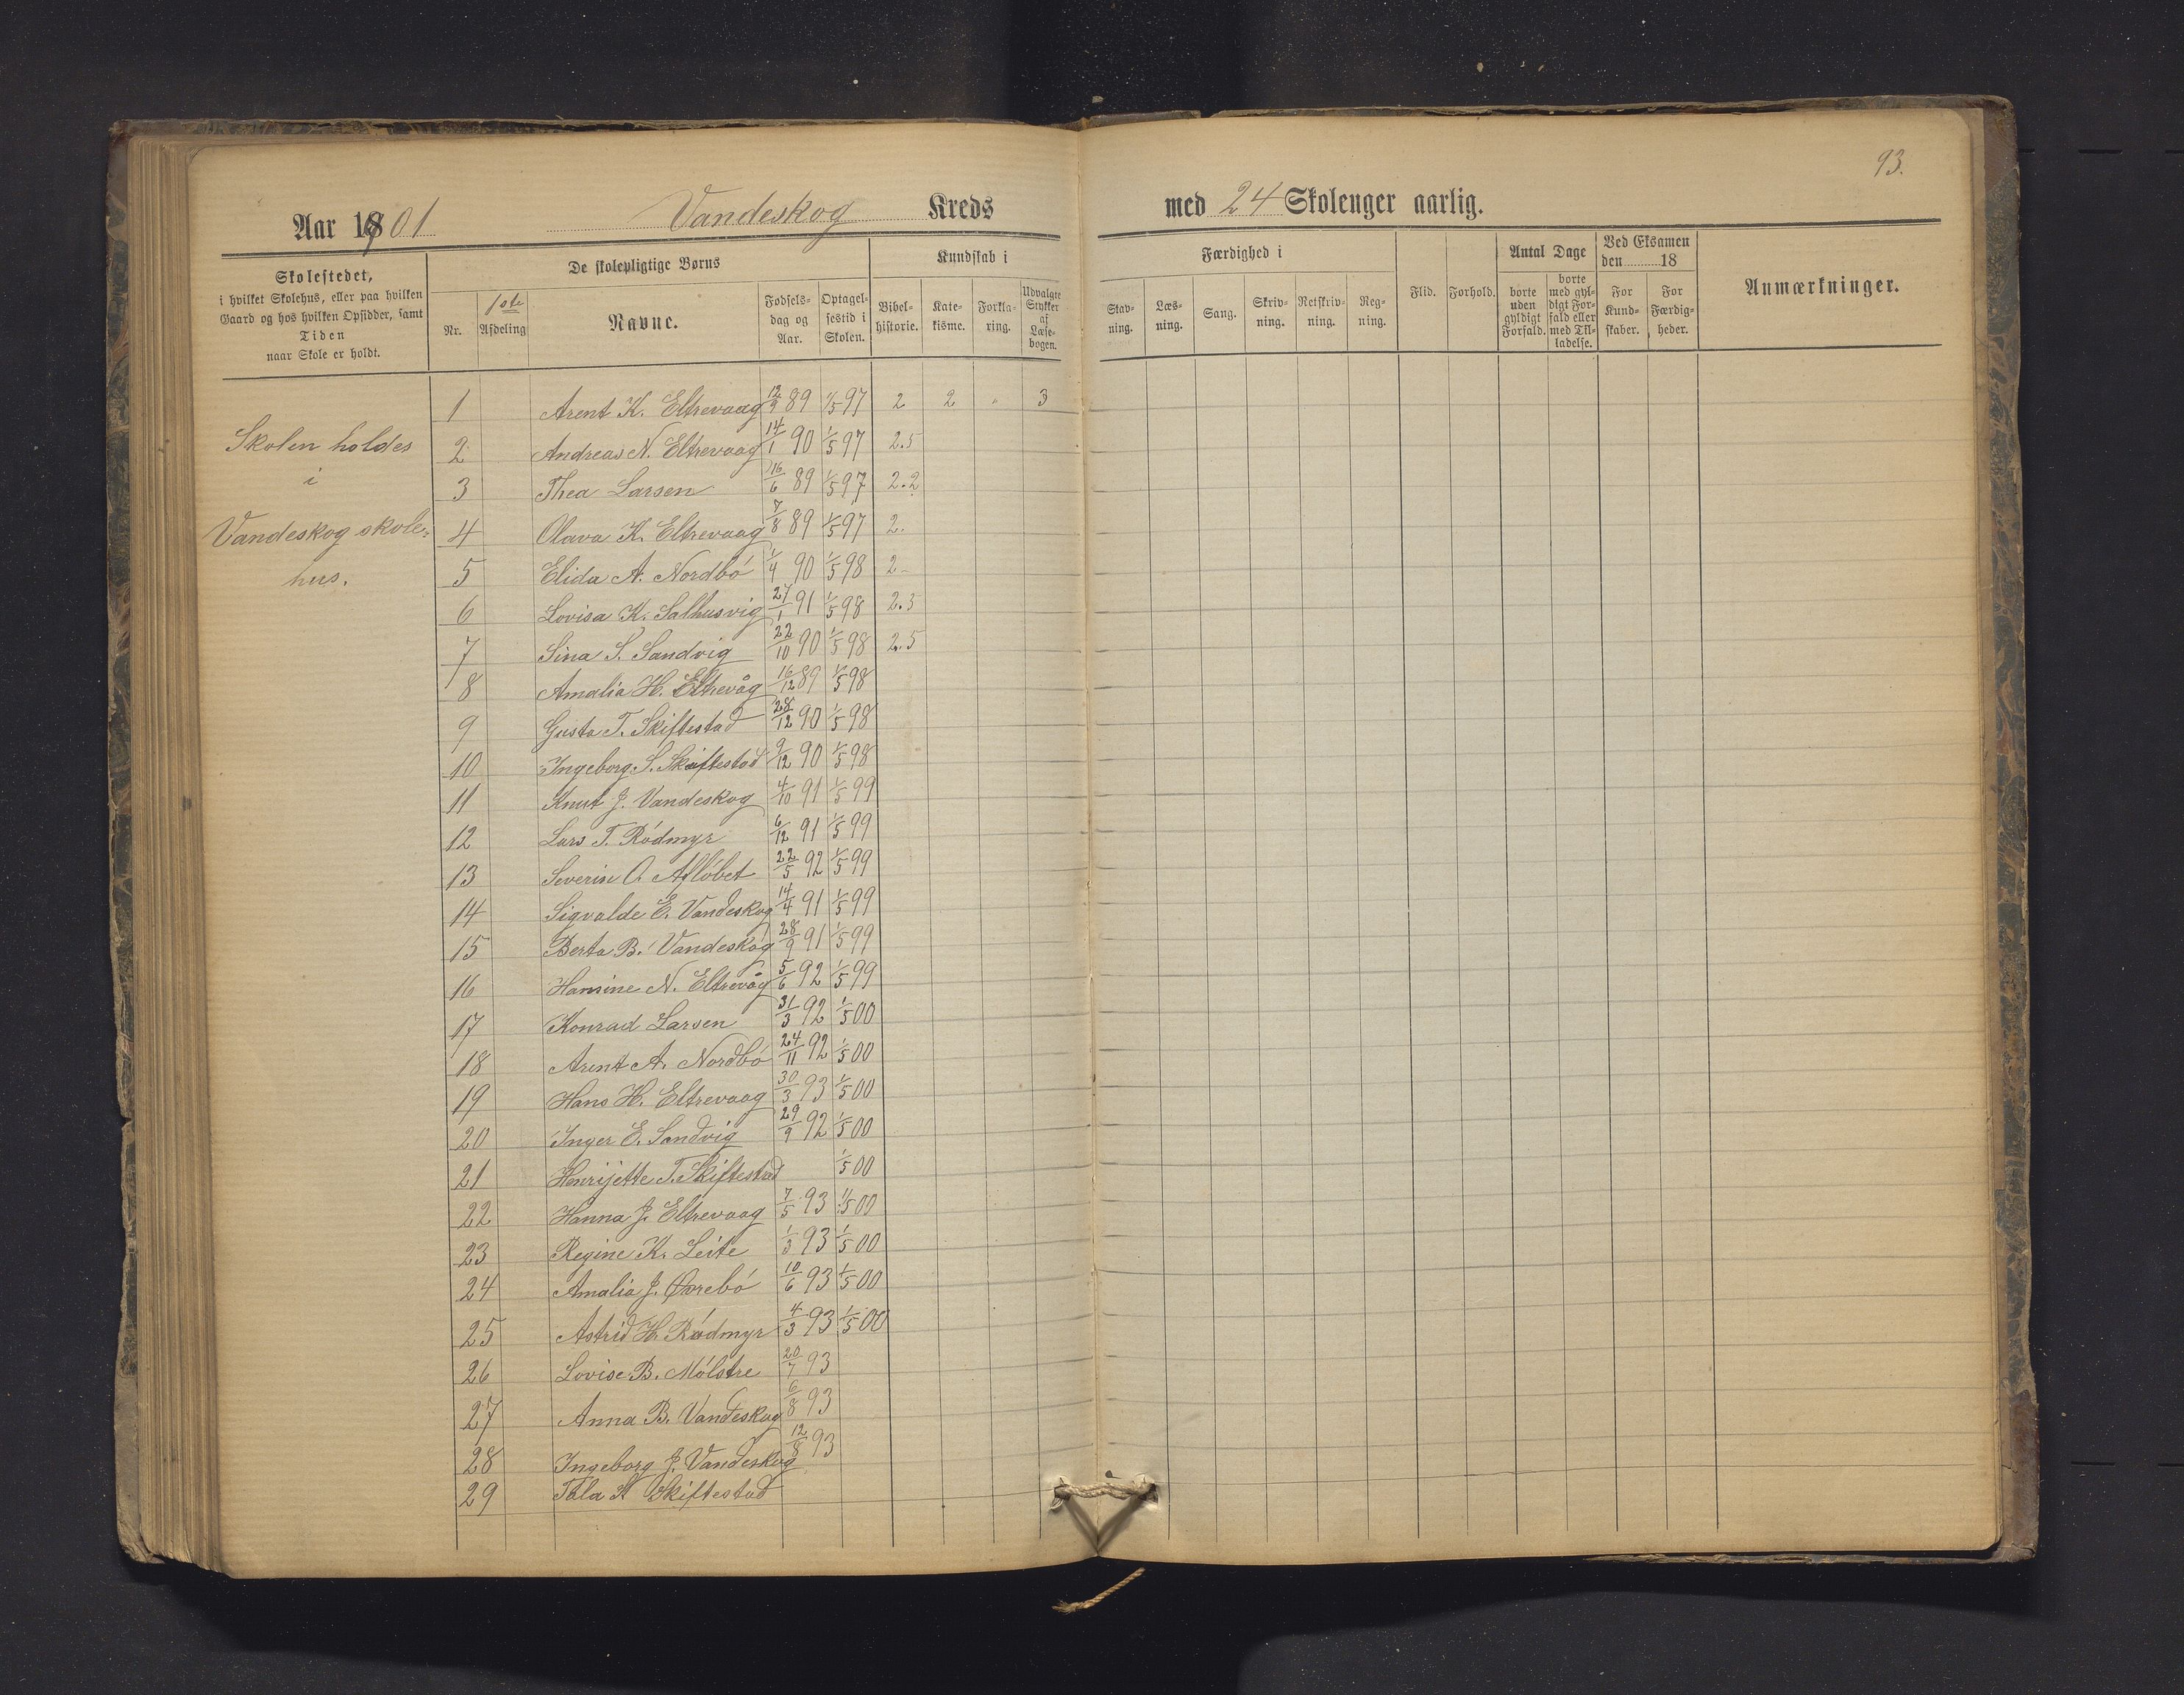 93.
Aar 1901 Vandeskog Kreds med 24 Skoleuger aarlig.
Skolestedet,
i hvilket Skolehus, eller paa hvilken
Gaard og hos hvilken Opsidder, samt
Tiden
naar Skole er holdt.
De skolepligtige Børns
Nr.
1ste
Afdeling
Navne.
Fødsels-
dag og
Aar.
Optagel-
sestid i
Skolen.
Kundskab i
Bibel-
historie.
Kate-
kisme.
Forkla-
ring.
Udvalgte
Stykker
af
Læse-
bogen.
Færdighed i
Stav-
ning.
Læs-
ning.
Sang.
Skriv-
ning.
Retskriv-
ning.
Reg-
ning.
Flid.
Forhold.
Antal Dage
borte
uden
gyldigt
Forfald.
borte
med gyl-
digt For-
fald eller
med Til-
ladelse.
Ved Eksamen
den 18
For
Kund-
skaber.
For
Færdig-
heder.
Anmærkninger.
Skolen holdes
i
Vandeskog skole-
hus.
1 Arent K. Eltrevaag 12/9 89 1/5 97 2 2 " 3
2 Andreas N. Eltrevaag 14/1 90 1/5 97 2.5
3 Thea Larsen 16/6 89 1/5 97 2.2
4 Olava K. Eltrevaag 7/8 89 1/5 97 2.
5 Elida A. Nordbó 1/4 90 1/5 98 2-
6 Lovisa K. Salhusvig 27/1 91 1/5 98 2.3
7 Sina S. Sandvig 22/10 90 1/5 98 2.5
8 Amalia H. Eltrevåg 16/12 89 1/5 98
9 Gusta T. Skiftestad 28/12 90 1/5 98
10 Ingeborg S. Skiftestad 9/12 90 1/5 98
11 Knut J. Vandeskog 4/10 91 1/5 99
12 Lars T. Ródmyr 6/12 91 1/5 99
13 Severin O. Aflóbet 22/5 92 1/5 99
14 Sigvalde E. Vandeskog 14/4 91 1/5 99
15 Berta B. Vandeskog 28/9 91 1/5 99
16 Hansine N. Eltrevåg 5/6 92 1/5 99
17 Konrad Larsen 31/3 92 1/5 00
18 Arent A. Nordbó 24/11 92 1/5 00
19 Hans H. Eltrevaag 30/3 93 1/5 00
20 Inger E. Sandvig 29/9 92 1/5 00
21 Henrijette T. Skiftestad 1/5 00
22 Hanna J. Eltrevaag 7/5 93 1/5 00
23 Regine K. Leite 1/3 93 1/5 00
24 Amalia J. Øvrebó 10/6 93 1/5 00
25 Astrid H. Ródmyr 4/3 93 1/5 00
26 Lovise B. Mólstre 20/7 93
27 Anna B. Vandeskog 6/8 93
28 Ingeborg J. Vandeskog 12/8 93
29 Skiftestad